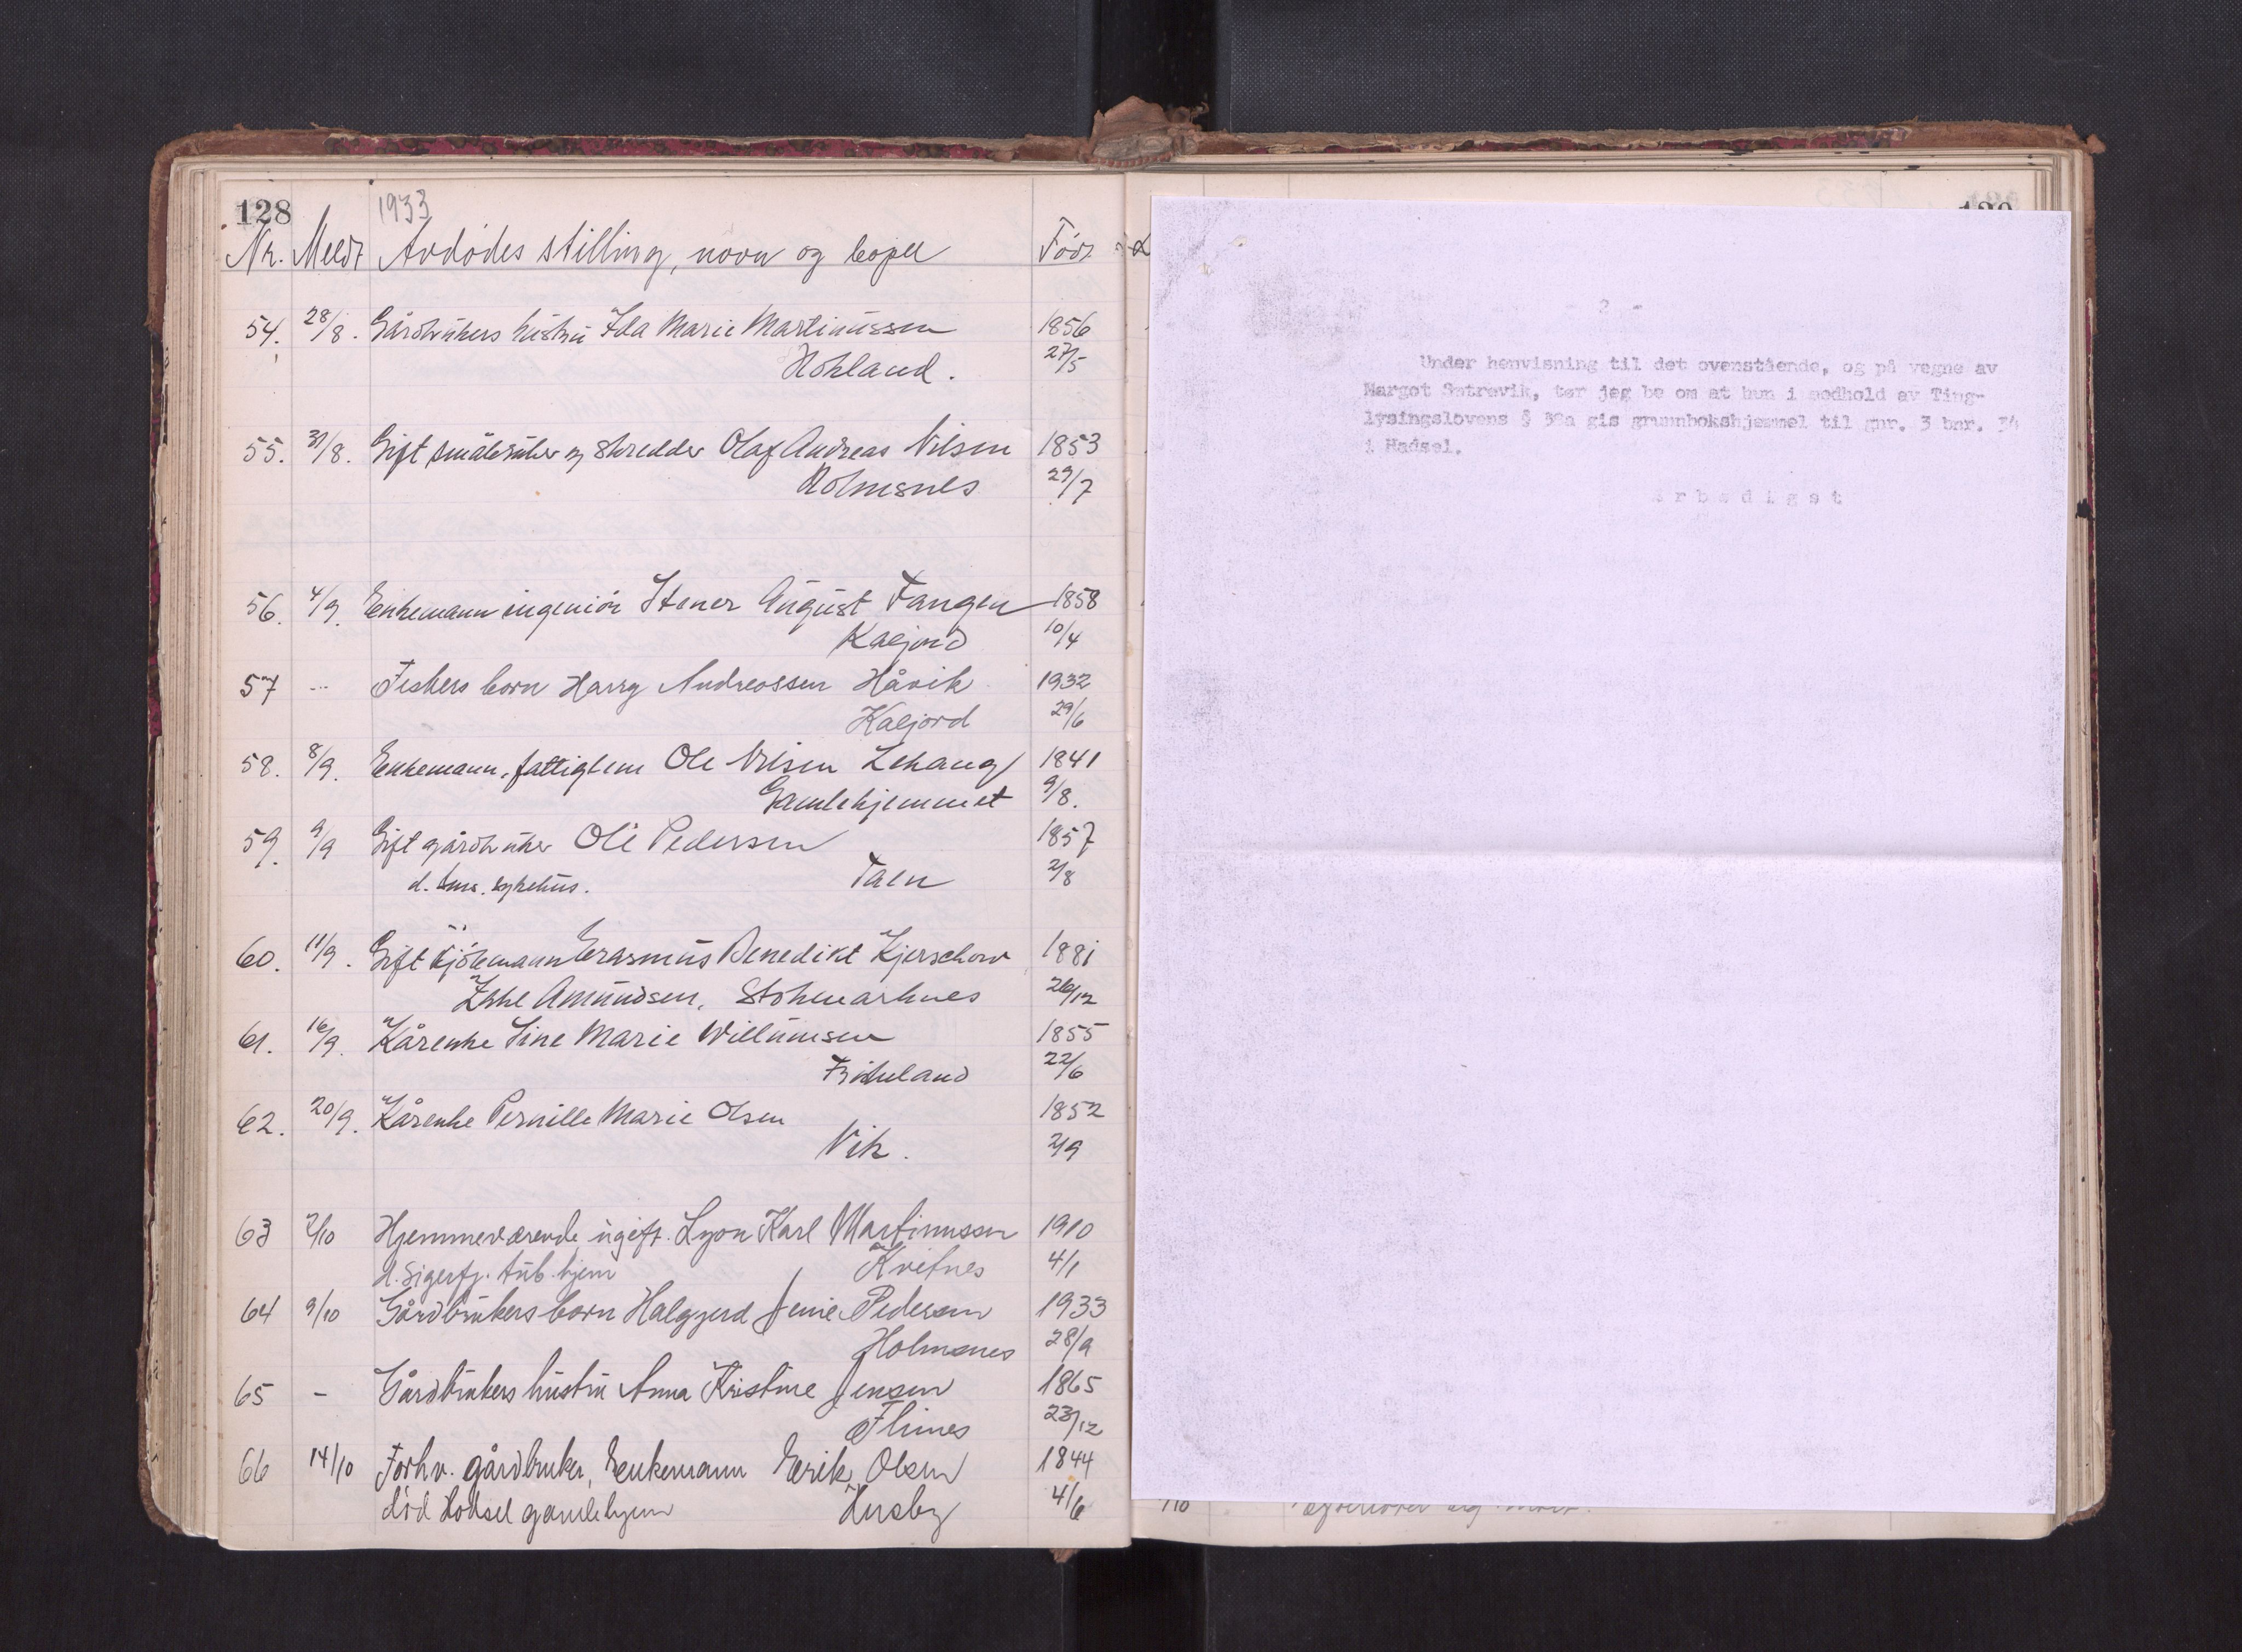 128
1933
Nr. Meldt Avdødes stilling, navn og bopel Født
54. 28/8. Gårdbrukers hustru Ida Marie Martinussen 1856
Hokland. 27/5
55. 31/8. Gift småbruker og skredder Olaf Andreas Nilsen 1853
Holmsnes 29/7
56. 4/9. Enkemann ingeniør Stener August Fangen 1858
Kaljord 10/4
57 Fiskers barn Harry Andreassen Håvik 1932
Kaljord 29/6
58. 8/9. Enkemann, fattiglem Ole Nilsen Lekang 1841
Gamlehjemmet 9/8.
59. 9/9 Gift gårdbruker Ole Pedersen 1857
d. sykehus. Taen 2/8
60. 11/9. Gift Erasmus Benedikt Kjerschow 1881
Zahl Amundsen, Stokmarknes 26/12
61. 16/9. Kårenke Sine Marie Willumsen 1855
22/6
62. 20/9. Kårenke Pernille Marie Olsen 1852
Vik. 2/9
63 2/10 Hjemmeværende ugift. Lyon Karl Martinussen 1910
d. Sigerfj. tub. hjem Kvitnes 4/1
64 9/10 Gårdbrukers barn Halgjerd Jenie Pedersen 1933
Holmsnes 28/9
65 - Gårdbrukers hustru Anna Kristine Jensen 1865
Flines 23/12
66 14/10 Forhv. gårdbruker, Enkemann Erik Olsen 1844
død Hadsel gamlehjem Husby 4/6
2 -
Under henvisning til det ovenstående, og på vegne av
Margot Sætrevik, tør jeg be om at hun i medhold av Ting-
lysingslovens § 38a gis grunnbokshjemmel til gnr. 3 bnr. 34
i Hadsel.
ærbødigst